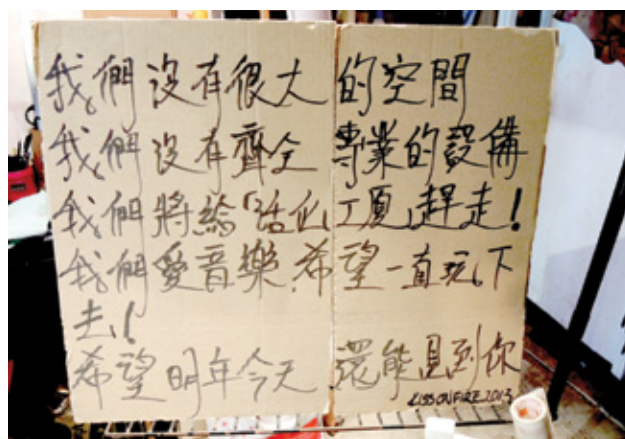 我們沒有很大的空間
我們沒有齊全專業的設備
我們將給「活化」工廈趕走！
我們愛音樂.希望一直玩下
去！
希望明年今天還能見到你
KISSONFIRE 2013